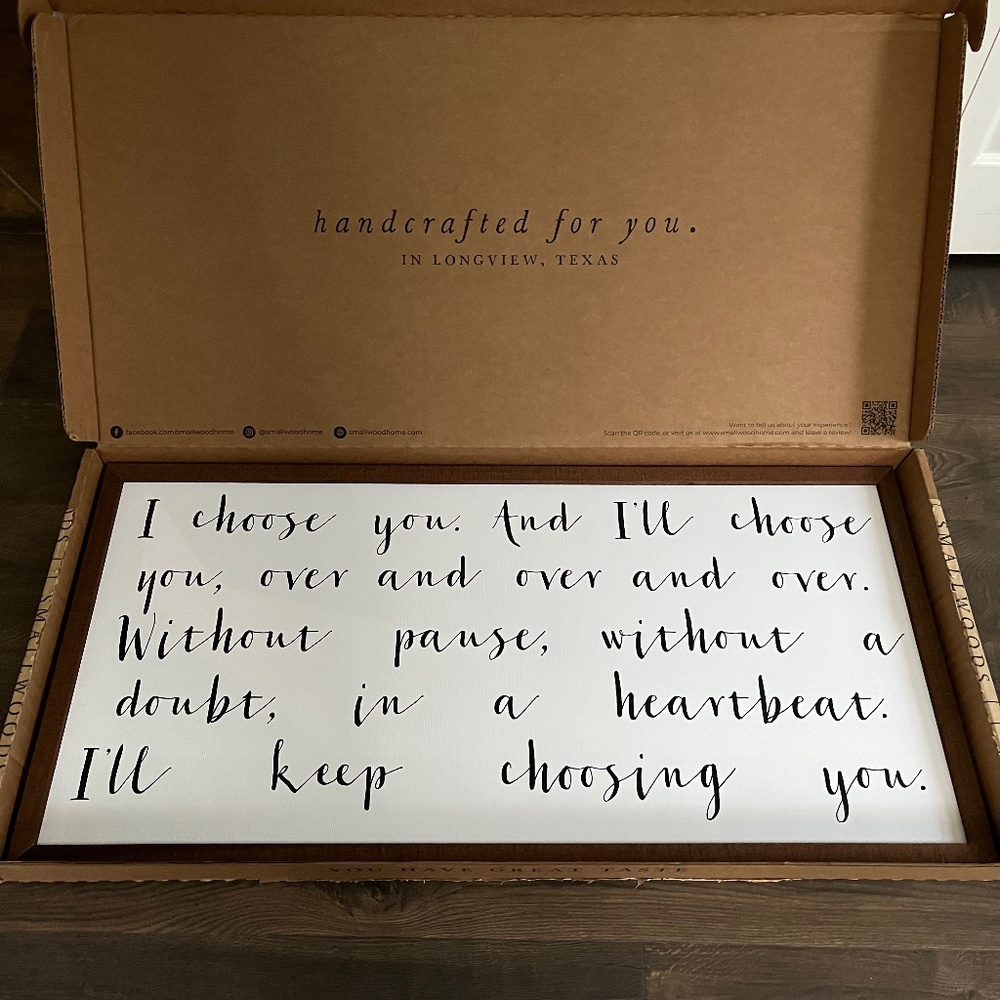 handcrafted for you.
IN LONGVIEW, TEXAS
facebook.com/smallwoodhome @smallwoodhome smallwoodhome.com
Want to tell us about your experience?
Scan the QR code, or visit us at www.smallwoodhome.com and leave a review!
I choose you. And I'll choose
you, over and over and over.
Without pause, without a
doubt, in a heartbeat.
I'll keep choosing you.
SMALLWOODS
SMALLWOODS
YOU HAVE GREAT TASTE